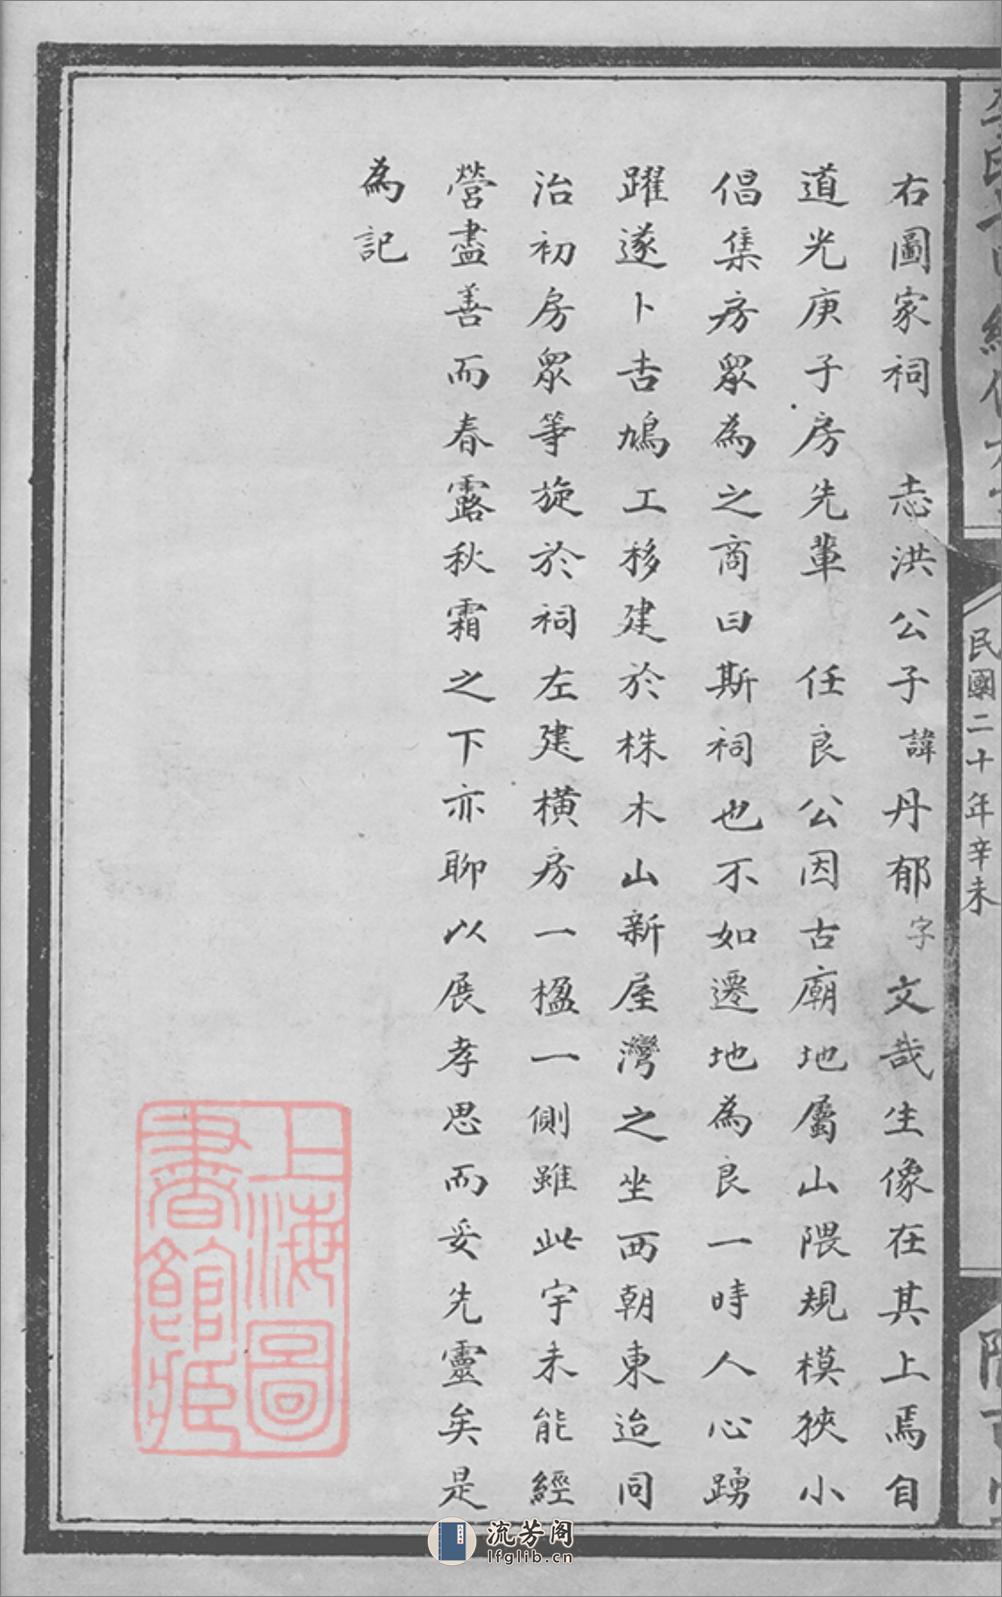 右圖家祠　志洪公子諱丹郁字文哉生像在其上焉自
道光庚子房先輩　任良公因古廟地屬山隈規模狹小
倡集房眾為之商曰斯祠也不如遷地為良一時人心踴
躍遂卜吉鳩工移建於株木山新屋灣之坐西朝東迨同
治初房眾等旋於祠左建橫房一楹一側雖此宇未能經
營盡善而春露秋霜之下亦聊以展孝思而妥先靈矣是
為記
民國二十年辛未
上海圖
書館藏
流芳阁
lfglib.cn